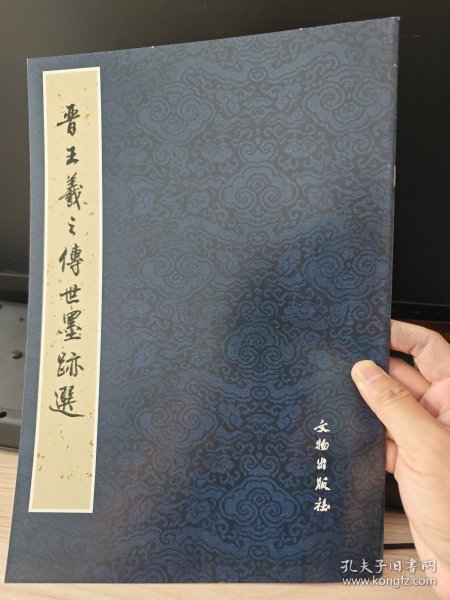 晋王羲之傳世墨跡選
文物出版社
孔夫子旧书网
www.kongfz.com